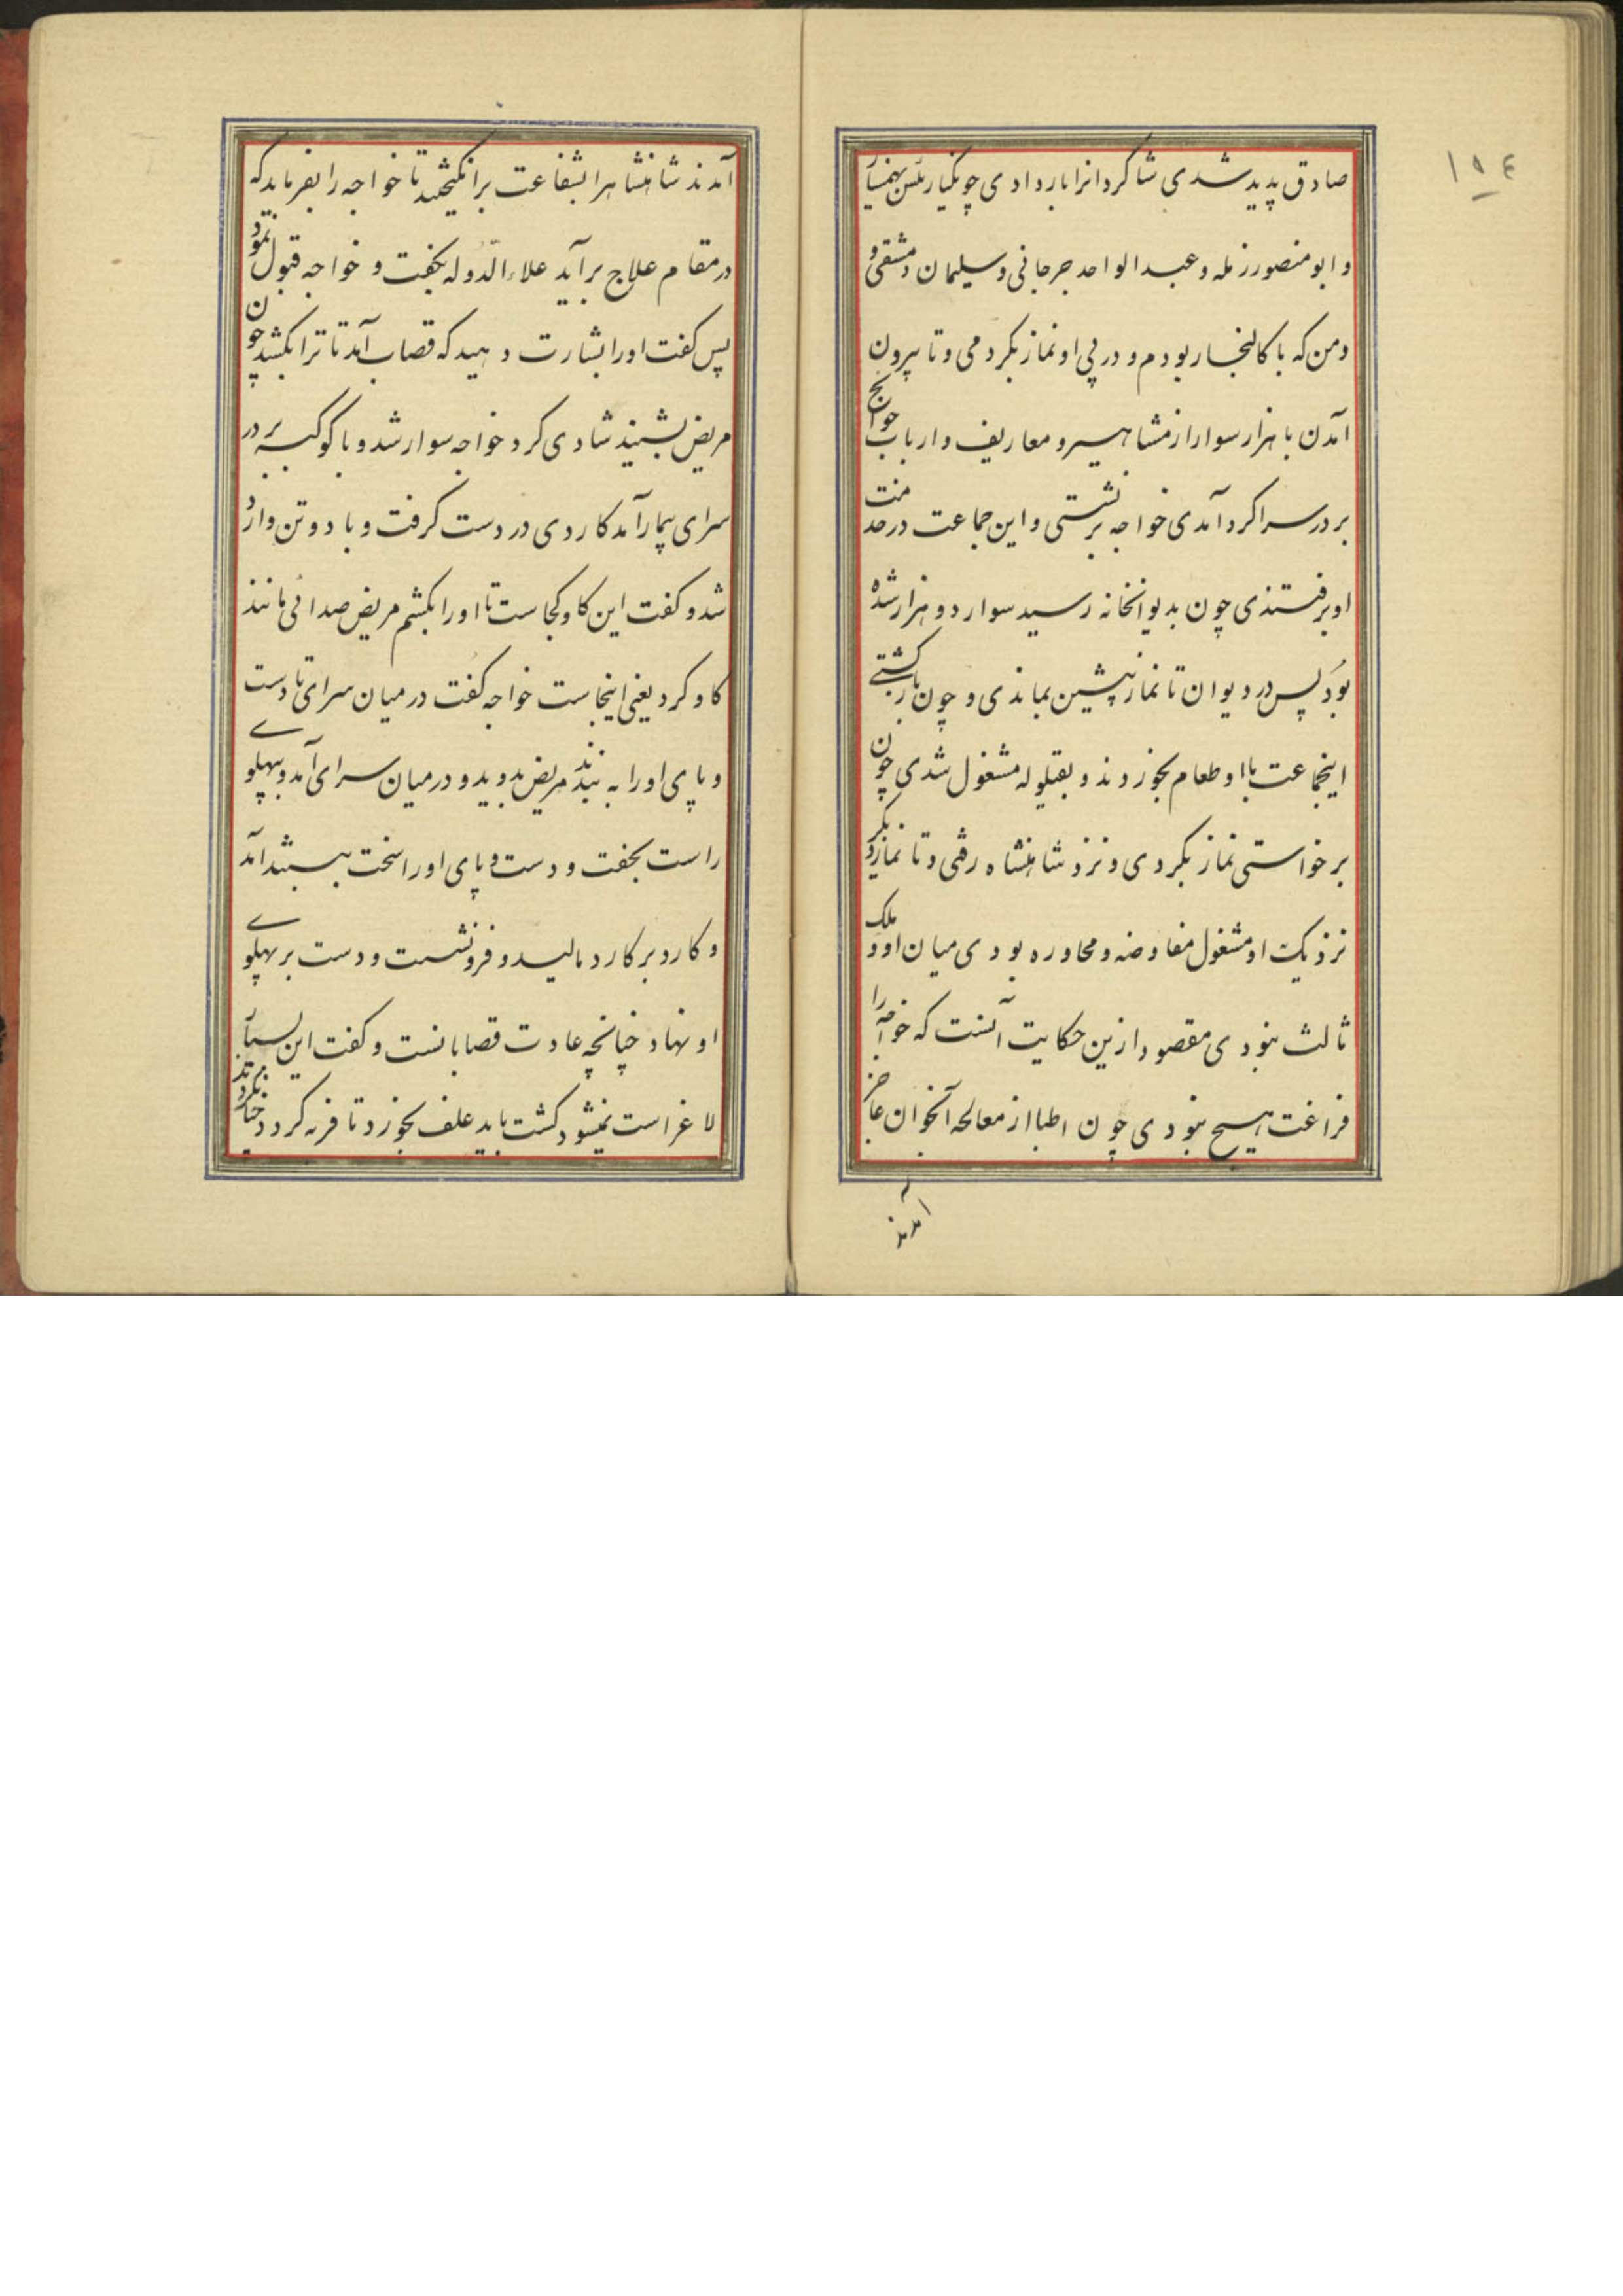 ١٥٤
صادق پدید شدی شاکردانرا بار دادی چون کیا رئیس بهمنیار
و ابو منصور زمله و عبد الواحد جرجانی و سلیمان دمشقی و
و من که با کالنجار بودم و در پی او نماز بکردمی و تا بیرون
آمدن با هزار سوار از مشاهیر و معاریف و ارباب حوایج
بر در سرا کرد آمدی خواجه برنشستی و این جماعت در خدمت
او برفتندی چون بدیوانخانه رسید سوار دو هزار شده
بود پس در دیوان تا نماز پیشین بماندی و چون بازکشتی
اینجماعت با او طعام بخوردند و بقیلوله مشغول شدی چون
برخواستی نماز بکردی و نزد شاهنشاه رفتی و تا نماز دیکر
نزدیک او مشغول مفاوضه و محاوره بودی میان او و ملک
ثالث نبودی مقصود ازین حکایت آنست که خواجه را
فراغت هیچ نبودی چون اطبا از معالجه آنجوان عاجز
آمدند
آمدند شاهنشاهرا بشفاعت برانکیختند تا خواجه را بفرماید که
در مقام علاج برآید علاء الدّوله بکفت و خواجه قبول نمود
پس کفت اورا بشارت دهید که قصاب آمد تا ترا بکشد چون
مریض بشنید شادی کرد خواجه سوار شد و با کوکبه بر در
سرای بیمار آمد کاردی در دست کرفت و با دو تن وارد
شد و کفت این کاو کجاست تا اورا بکشم مریض صدائی مانند
کاو کرد یعنی اینجاست خواجه کفت در میان سرای تا دست
و پای اورا به بندند مریض بدوید و در میان سرای آمد و بپهلوے
راست بخفت و دست و پای اورا سخت ببستند آمد
و کارد بر کارد مالید و فرونشست و دست بر پهلوے
او نهاد چنانچه عادت قصابانست و کفت این بسیار
لاغر است نمیشود کشت باید علف بخورد تا فربه کردد